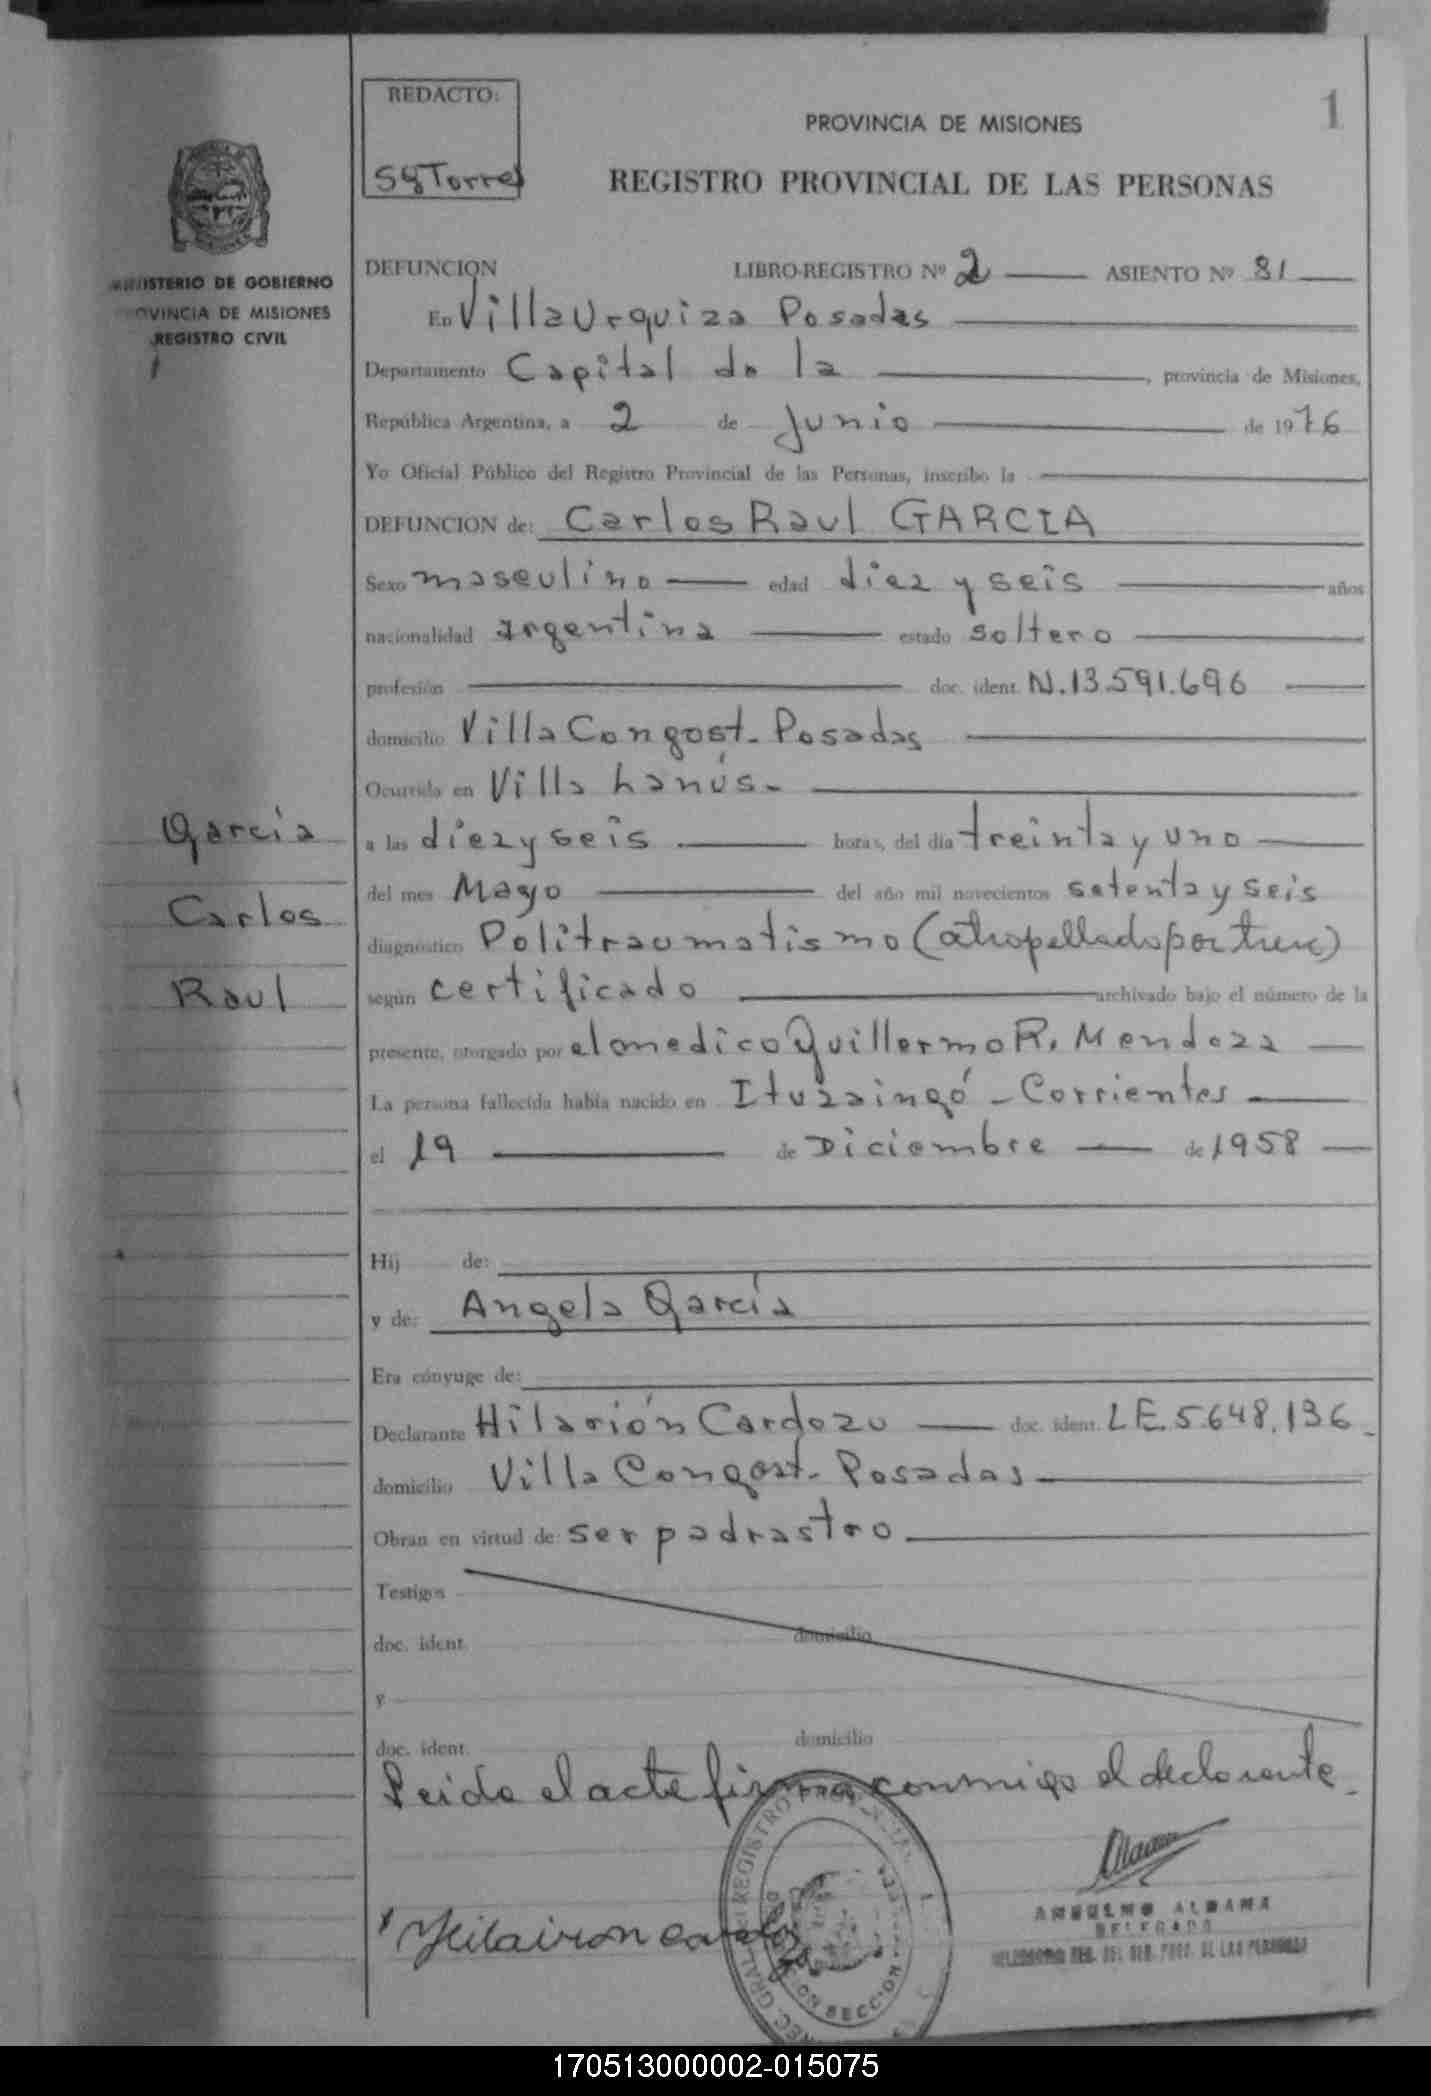 REDACTO:
SgTorres
PROVINCIA DE MISIONES
1
REGISTRO PROVINCIAL DE LAS PERSONAS
MINISTERIO DE GOBIERNO
PROVINCIA DE MISIONES
REGISTRO CIVIL
DEFUNCION LIBRO-REGISTRO Nº 2 ASIENTO Nº 81
En Villa Urquiza Posadas
Departamento Capital de la, provincia de Misiones,
República Argentina, a 2 de Junio de 1976
Yo Oficial Público del Registro Provincial de las Personas, inscribo la
DEFUNCION de: Carlos Raul GARCIA
Sexo masculino edad diez y seis años
nacionalidad argentina estado soltero
profesión doc. ident. N.13.591.696
domicilio Villa Congost - Posadas
Ocurrida en Villa Lanús -
García
a las diez y seis horas, del día treinta y uno
del mes Mayo del año mil novecientos setenta y seis
Carlos
diagnóstico Politraumatismo (atropellado por tren)
Raul
según certificado archivado bajo el número de la
presente, otorgado por el medico Guillermo R. Mendoza
La persona fallecida había nacido en Ituzaingó - Corrientes
el 19 de Diciembre de 1958
Hij de:
y de: Angela García
Era cónyuge de:
Declarante Hilarión Cardozo doc. ident. L.E. 5.648.136.
domicilio Villa Congost - Posadas
Obran en virtud de: ser padrastro
Testigos
doc. ident. domicilio
y
doc. ident. domicilio
Leida el acta firma conmigo el declarante.
ANSELMO ALDAMA
DELEGADO
REGISTRO
SECCION
170513000002-015075